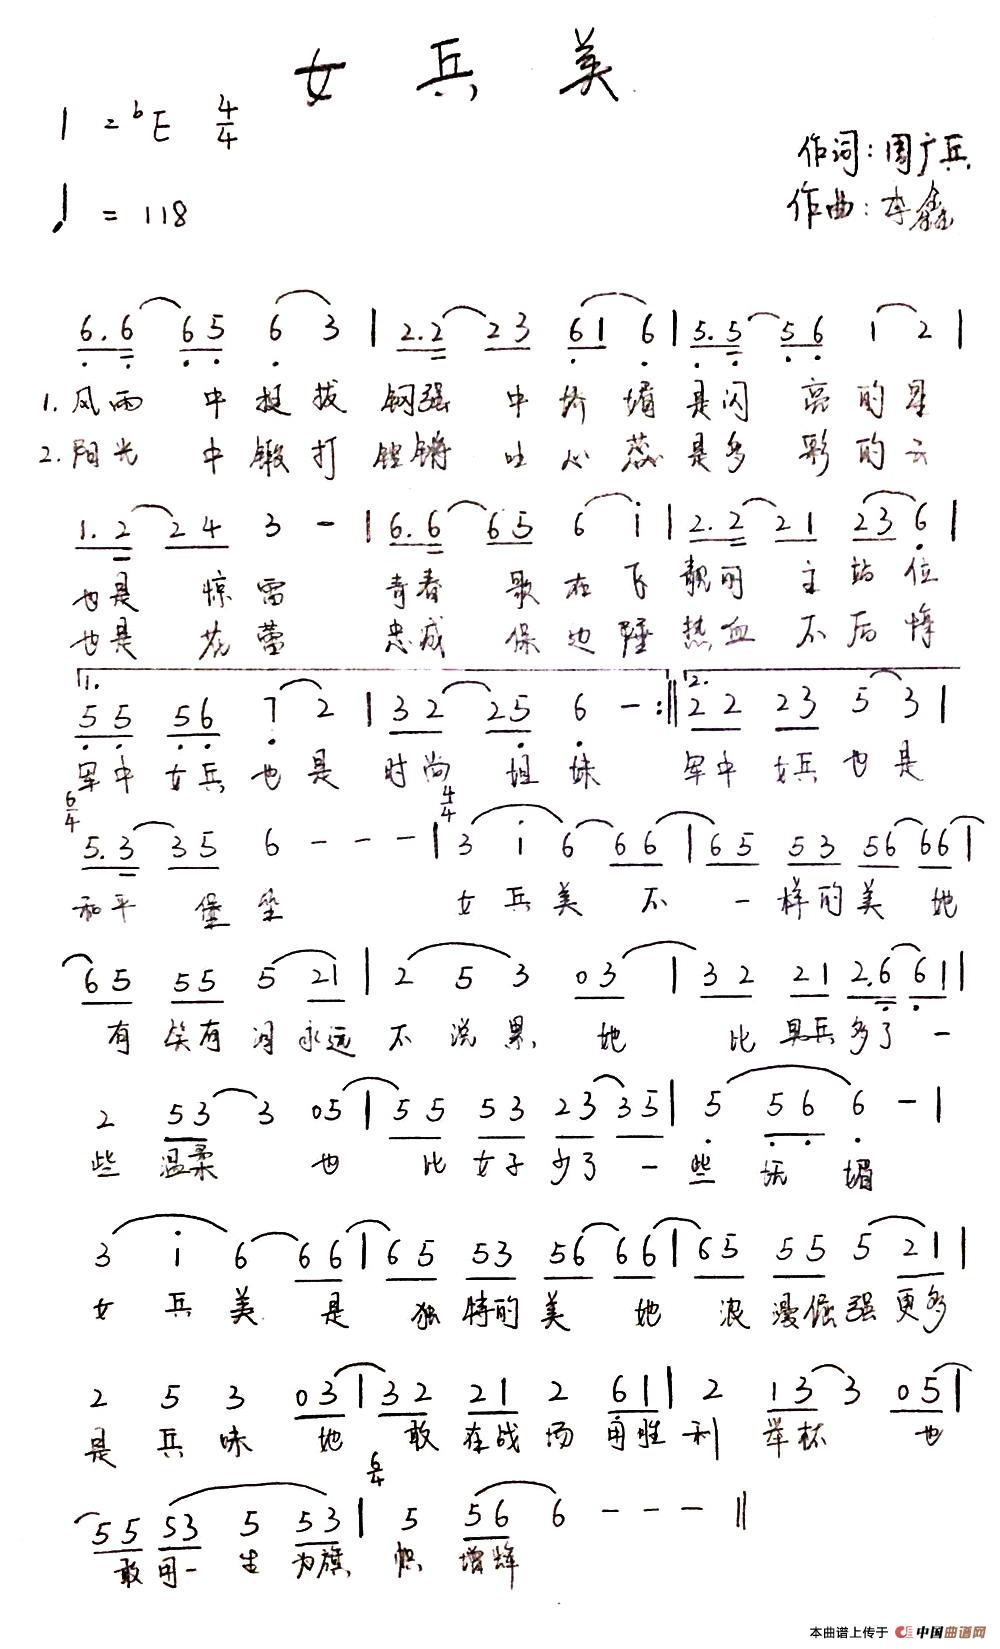 女兵美
1=bE 4/4
作词：周广兵
♩=118
作曲：李鑫
6.6 65 6 3 | 2.2 23 61 6 | 5.5 56 1 2 |
1.风雨 中挺拔 钢强 中娇媚 是闪 亮的星
2.阳光 中锻打 铿锵 吐心蕊 是多 彩的云
1.2 24 3 - | 6.6 65 6 i | 2.2 21 23 6 |
也是 惊雷 青春 歌在飞 靓丽 主站位
也是 花蕾 忠诚 保边陲 热血 不后悔
1. 2.
55 56 7 2 | 32 25 6 - :‖ 22 23 5 3 |
军中 女兵也是 时尚 姐妹 军中 女兵也是
6/4 4/4
5.3 35 6 - - - | 3 i 6 66 | 65 53 56 66 |
和平 堡垒 女兵美 不 一样的美 她
65 55 5 21 | 2 5 3 03 | 32 21 2.6 61 |
有笑有泪永远 不说累 她 比男兵多了一
2 53 3 05 | 55 53 23 35 | 5 56 6 - |
些 温柔 也 比女子少了一 些妩媚
3 i 6 66 | 65 53 56 66 | 65 55 5 21 |
女兵美 是 独特的美 她 浪漫倔强更多
2 5 3 03 | 32 21 2 61 | 2 13 3 05 |
是兵味 她 敢在战场用胜利 举杯 也
6/4
55 53 5 53 | 5 56 6 - - - ‖
敢用一生为旗帜 增辉
本曲谱上传于 中国曲谱网